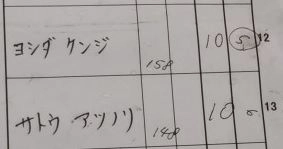 ヨシダ ケンジ 158 10 5 12
サトウ アツノリ 148 10 5 13